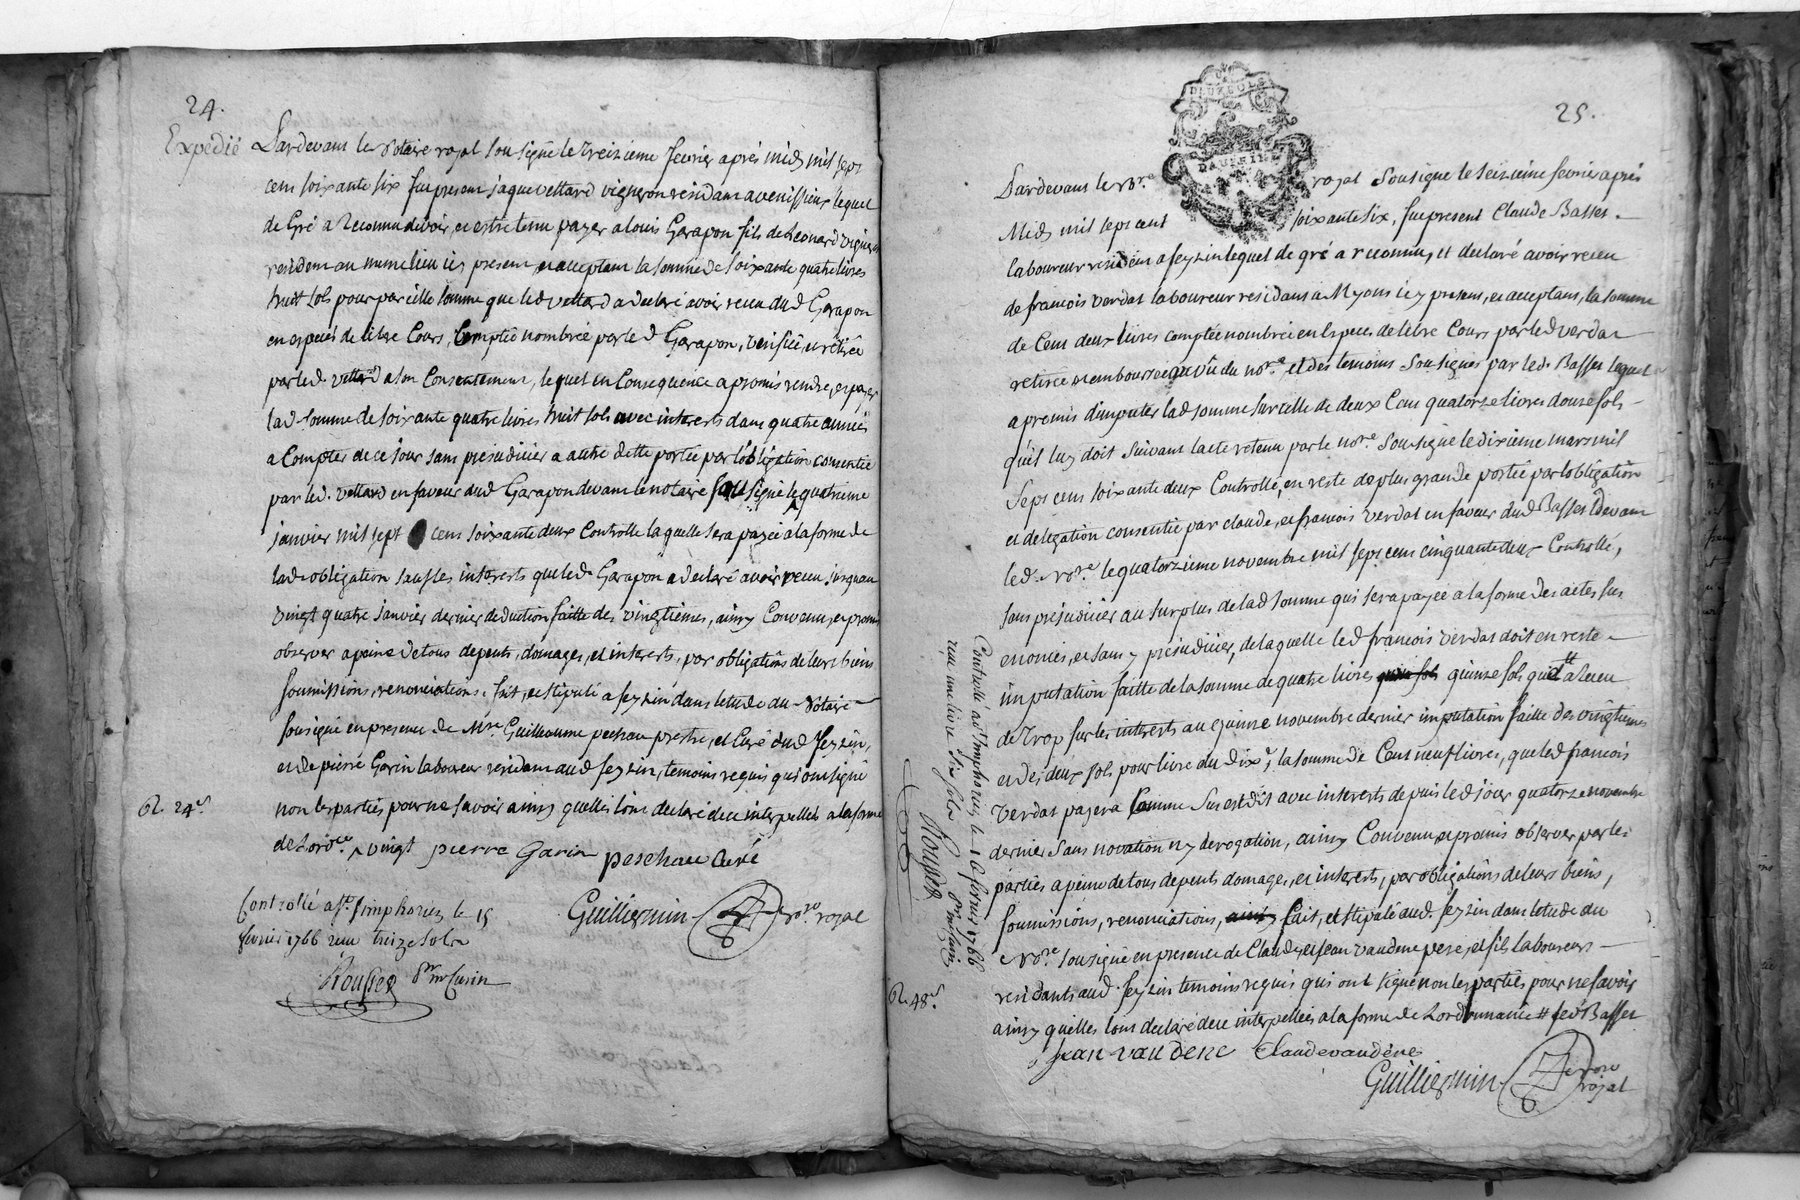 24.
Expedié
Pardevant le Notaire royal sousigné le treizieme fevrier après midy mil sept
cens soixante six fut present jaque vettard vigneron residant a venissieux lequel
de Gré a Reconnu devoir, et estre tenu payer a louis Garapon fils de Leonard vigneron
resident au meme lieu icy present, et acceptant la somme de soixante quatre livres
huit sols pour pareille somme que led vettard a declaré avoir receu dud Garapon
en especes de libre Cours, Comptée nombrée par led Garapon, verifiée et retirée
par led. vettard a son Consentement, lequel en Consequence a promis rendre, et payer
lad somme de soixante quatre livres huit sols avec interets dans quatre années
a Compter de ce jour sans prejudicier a autre dette portée par l'obligation consentie
par led. vettard en faveur dud Garapon devant le notaire sousigné le quatrieme
janvier mil sept cens soixante deux Controllé laquelle sera payée a la forme de
lade obligation sauf les interets que led Garapon a declaré avoir receu jusquau
vingt quatre janvier dernier deduction faitte des vingtiemes, ainsy Convenu, et promis
observer a peine de tous depents, domages, et interets, par obligations de leurs biens
soumissions, renonciations. fait, et stipulé a feyzin dans letude du Notaire
sousigné en presence de Mre Guilleaume peschau prestre, et Curé dud feyzin,
et de pierre Garin laboureur residant aud feyzin, temoins requis qui ont signé
non les parties pour ne savoir ainsy quelles l'ont declaré de ce interpellés a la forme
de Lordce, vingt pierre Garin peschau Curé
R. 24s
Controllé a St. Simphorien le 15
fevrier 1766 receu treize sols
Rousset pr mr Curin
Guilliermin nore royal
25.
DEUX SOLS
DAUPHINE
Pardevant le Nore royal sousigné le seizieme fevrier après
Midy mil sept cent soixante six, fut present Claude Basset
laboureur resident a feyzin lequel de gré a reconnu, et declaré avoir receu
de francois verdat laboureur residant a Myons icy present, et acceptant, la somme
de Cent deux livres comptée nombrée en Especes de libre Cours par led verdat
retirée et emboursée au vû du nore et des temoins sousignés par led. Basset lequel
a promis d'imputer lad somme sur celle de deux Cent quatorze livres douze sols
qu'il luy doit suivant lacte retenu par le nore sousigné le dixieme mars mil
sept cens soixante deux Controllé, en reste de plus grande portée par l'obligation
et delegation consentie par claude, et francois verdat en faveur dud Basset devant
led. Nore le quatorzieme novembre mil sept cens cinquante deux Controllé,
sans prejudicier au surplus de lad somme qui sera payée a la forme des actes sus
enoncés, et sans y prejudicier, de laquelle led francois verdat doit en reste
imputation faitte de la somme de quatre livres quinze sols quil a receu
de trop sur les interets au quinze novembre dernier imputation faitte des vingtiemes
et des deux sols pour livre du dixe, la somme de Cent neuf livres, que led francois
verdat payera Comme sus est dit avec interets depuis led jour quatorze novembre
dernier sans novation ny derogation, ainsy Convenu, et promis observer par les
parties a peine de tous depents domages, et interets, par obligations de leurs biens,
soumissions, renonciations, fait, et stipulé aud. feyzin dans letude du
Nore sousigné en presence de Claude, et Jean vaudene pere, et fils laboureurs
residants aud feyzin temoins requis qui ont signé non les parties pour ne savoir
ainsy quelles l'ont declaré de ce interpellées a la forme de Lordonnance # led Basset
Jean vaudene Claude vaudene
Guilliermin nore royal
R. 48s.
Controllé a St. Simphorien le 16 fevrier 1766
receu une livre six sols pr mr Curin
Rousset